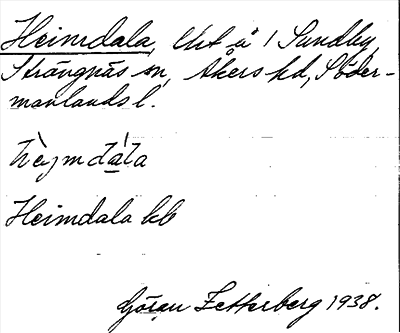 Heimdala, Utj å 1 Sundby,
Strängnäs sn, Åkers hd, Söder-
manlands l.
hèjmdàla
Heimdala kb
Göran Zetterberg 1938.